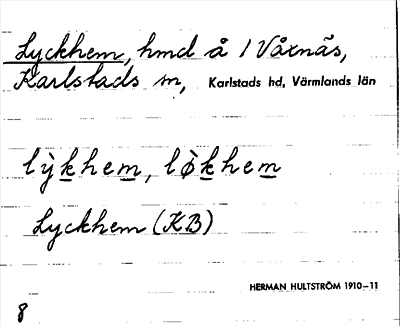 Lyckhem, hmd å 1 Våxnäs,
Karlstads sn, Karlstads hd, Värmlands län
lỳkhem, lø̀khem
Lyckhem (KB)
HERMAN HULTSTRÖM 1910–11
8